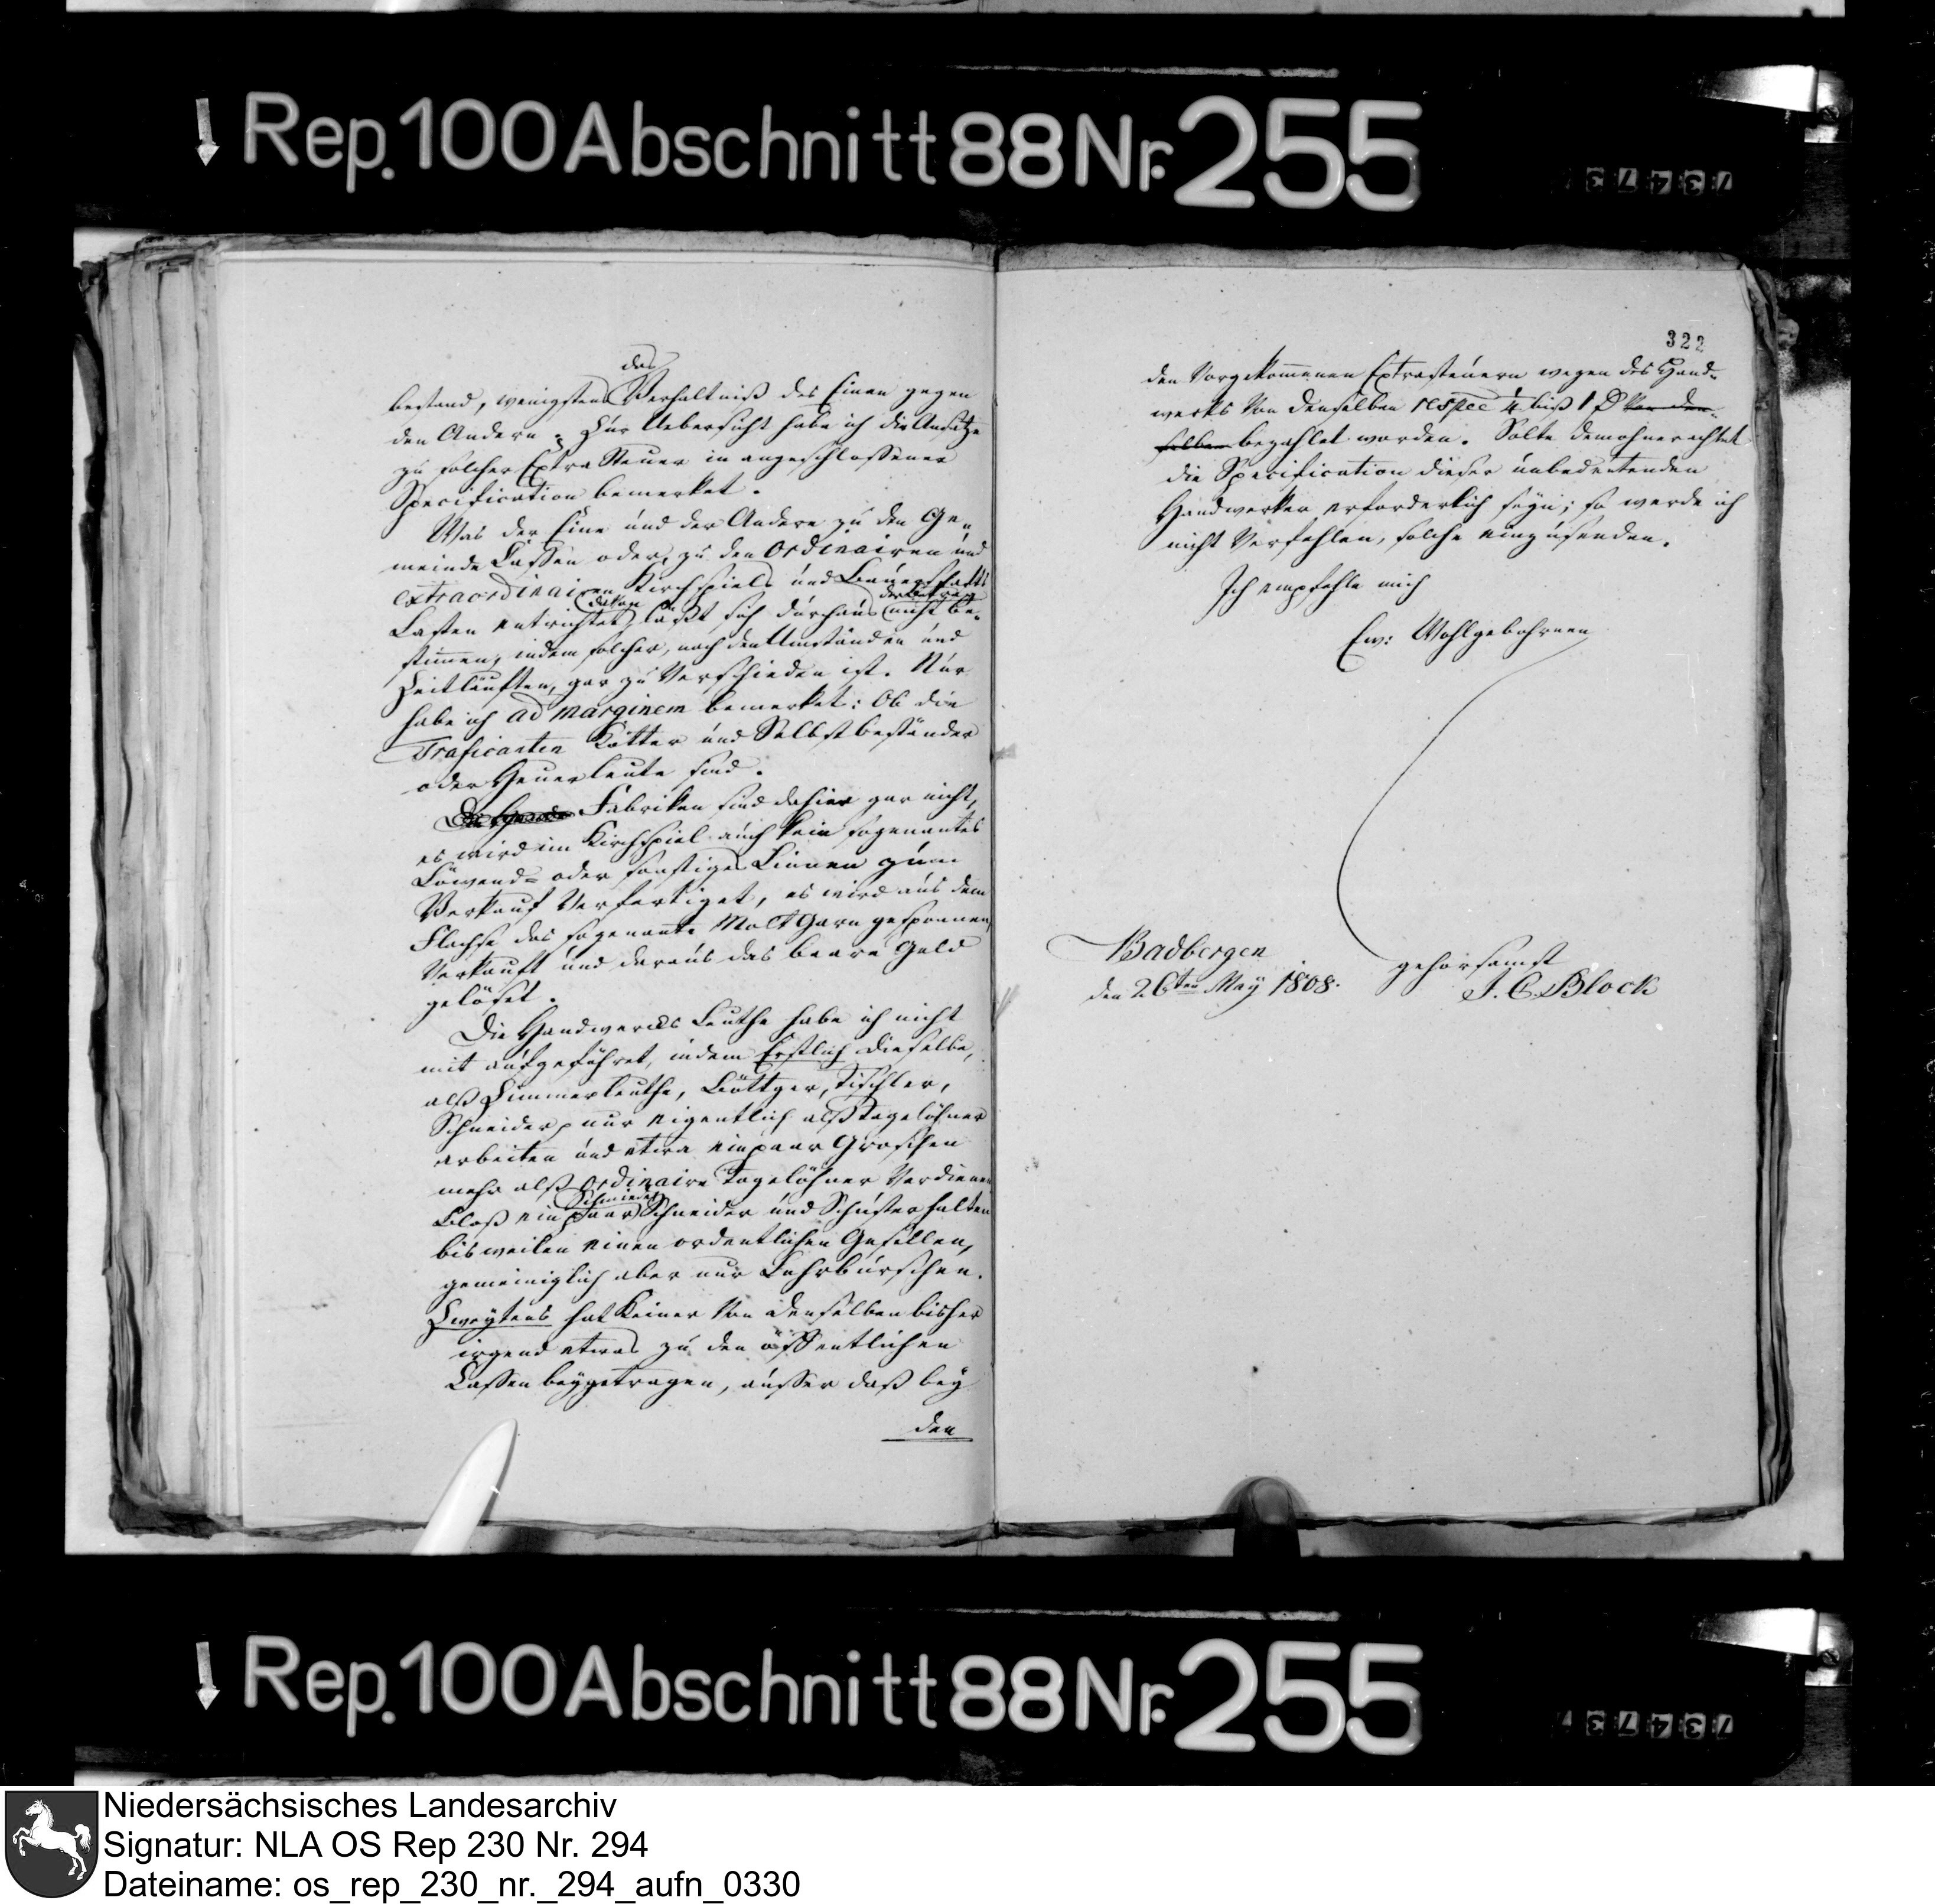 Rep. 100 Abschnitt 88 Nr. 255
73473
das
bestand, wenigstens Verhältniß des Einen gegen
den Andern. Zur Uebersicht habe ich die Ansätze
zu solcher Extra Steuer in angeschlossener
Specification bemerket.
Was der Eine und der Andere zu den Ge-
meinde Lasten oder, zu den Ordinairen und
extraordinairen Kirchspiels und Bauerschafts
der Betrag
Lasten entrichtet, läßt sich durchaus nicht be-
stimmen, indem solcher, nach den Umständen und
Zeitläuften, gar zu verschieden ist. Nur
habe ich ad marginem bemerket: Ob die
Traficanten Kötter und Selbstbeständer
oder Heuerleute sind.
Fabriken sind dahier gar nicht,
es wird im Kirchspiel auch kein sogenantes
Löwend- oder sonstiges Linnen zum
Verkauf verfertiget, es wird aus dem
Flachse das sogenante Molt Garn gesponnen,
verkauft und daraus das baare Geld
gelöset.
Die Handwercks Leuthe habe ich nicht
mit aufgeführet, indem Erstlich dieselbe,
alß Zimmerleuthe, Böttger, Tischler,
Schneider, nur eigentlich alß Tagelöhner
arbeiten und etwa ein paar Groschen
mehr alß ordinaire Tagelöhner verdienen
Schmiede
Bloß ein paar Schneider und Schuster halten
bisweilen einen ordentlichen Gesellen,
gemeiniglich aber nur Lehrburschen.
Zweytens hat keiner von denselben bisher
irgend etwas zu den öffentlichen
Lasten beygetragen, ausser daß bey
den
322
den vorgekommenen Extrasteuern wegen des Hand-
werks von denselben respec 4 biß 1 von den-
selben bezahlet worden. Solte demohnerachtet
die Specification dieser unbedeutenden
Handwerker erforderlich seyn; so werde ich
nicht verfehlen, solche einzusenden.
Ich empfehle mich
Ew: Wohlgebohrnen
Badbergen
den 26ten May 1808.
gehorsamst
J. C. Block
Rep. 100 Abschnitt 88 Nr. 255
73473
Niedersächsisches Landesarchiv
Signatur: NLA OS Rep 230 Nr. 294
Dateiname: os_rep_230_nr._294_aufn_0330